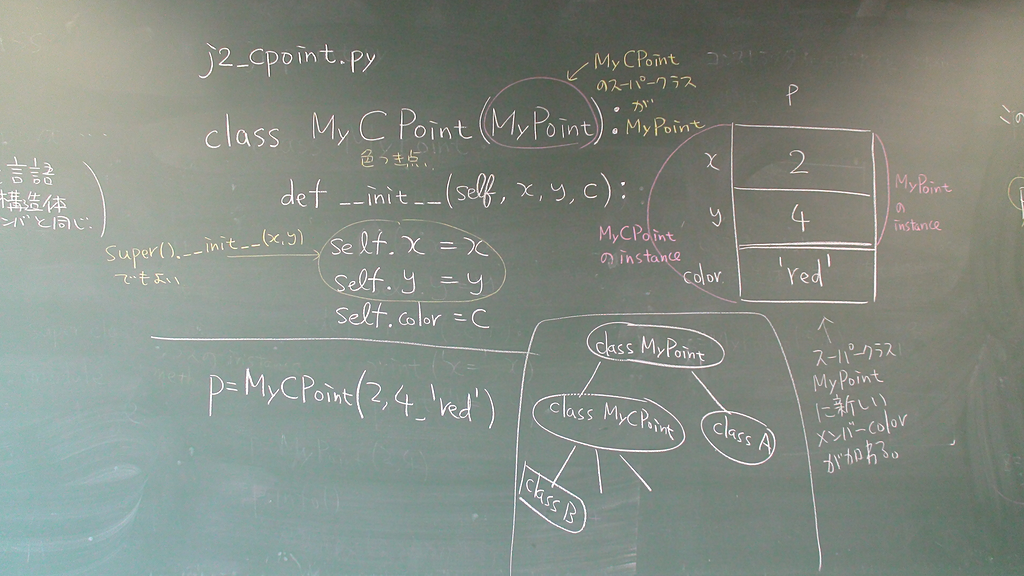 j2_cpoint.py
class MyCPoint(MyPoint):
色つき点
MyCPoint
のスーパークラス
が
MyPoint
def __init__(self, x, y, c):
self.x = x
self.y = y
self.color = c
super().__init__(x,y)
でもよい
言語
構造体
ンバと同じ.
p=MyCPoint(2,4_'red')
p
x 2
y 4
color 'red'
MyCPoint
のinstance
MyPoint
の
instance
↑
スーパークラス
MyPoint
に新しい
メンバーcolor
が加わる。
class MyPoint
class MyCPoint
class A
class B